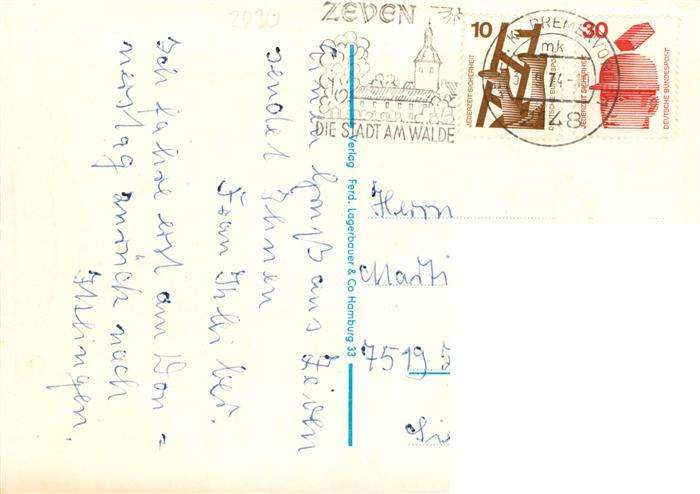 2930
ZEVEN
DIE STADT AM WALDE
BREMERVÖ
mk
74
48
10
JEDERZEIT SICHERHEIT
DEUTSCHE BUNDESPOST
30
JEDERZEIT SICHERHEIT
DEUTSCHE BUNDESPOST
Einen Gruß aus Zeven
sendet Ihnen
Frau
Ich fahre erst am Don=
nerstag zurück nach
Verlag Ferd. Lagerbauer & Co Hamburg 33
Herrn
Marti
7519